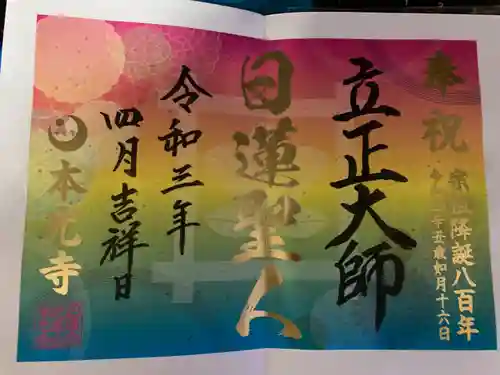 奉祝
宗祖降誕八百年
辛丑歳如月十六日
立正大師
日蓮聖人
令和三年
四月吉祥日
本光寺